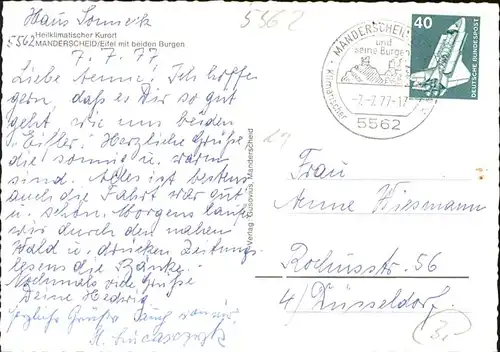 Haus Sonneck
5562
Heilklimatischer Kurort
5562 MANDERSCHEID/Eifel mit beiden Burgen
7.7.77.
Liebe Aenne! Ich hoffe
gern, daß es Dir so gut
geht, wie uns beiden
Eifler. Herzliche Grüße
die sonnig u. warm
sind. Alles ist bestens
auch die Fahrt war gut
u. schön. Morgens
wir durch den nahen
Wald u. drücken Zeitung-
lesend die Bänke.
Nochmals viele Grüße
Deine Hedwig
herzliche Grüße
Verlag: Manderscheid
MANDERSCHEID
und
seine Burgen
Klimatischer
-7.-7.77-17
5562
40
DEUTSCHE BUNDESPOST
Frau
Anne Wiesmann
Rochusstr. 56
4/Düsseldorf